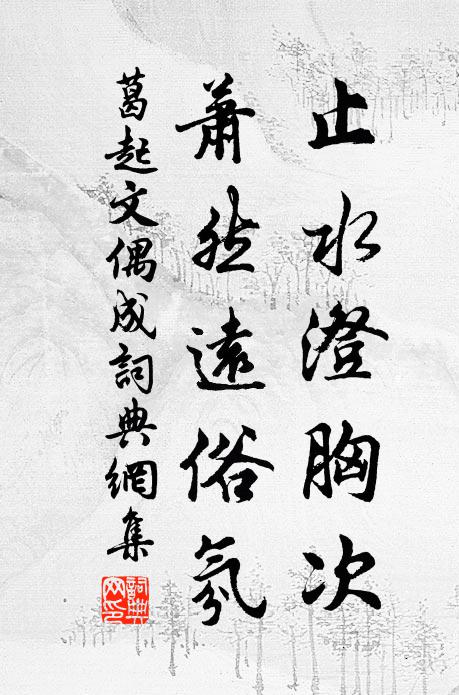 止水澄胸次
蕭然遠俗氛
葛起文偶成詞典網集